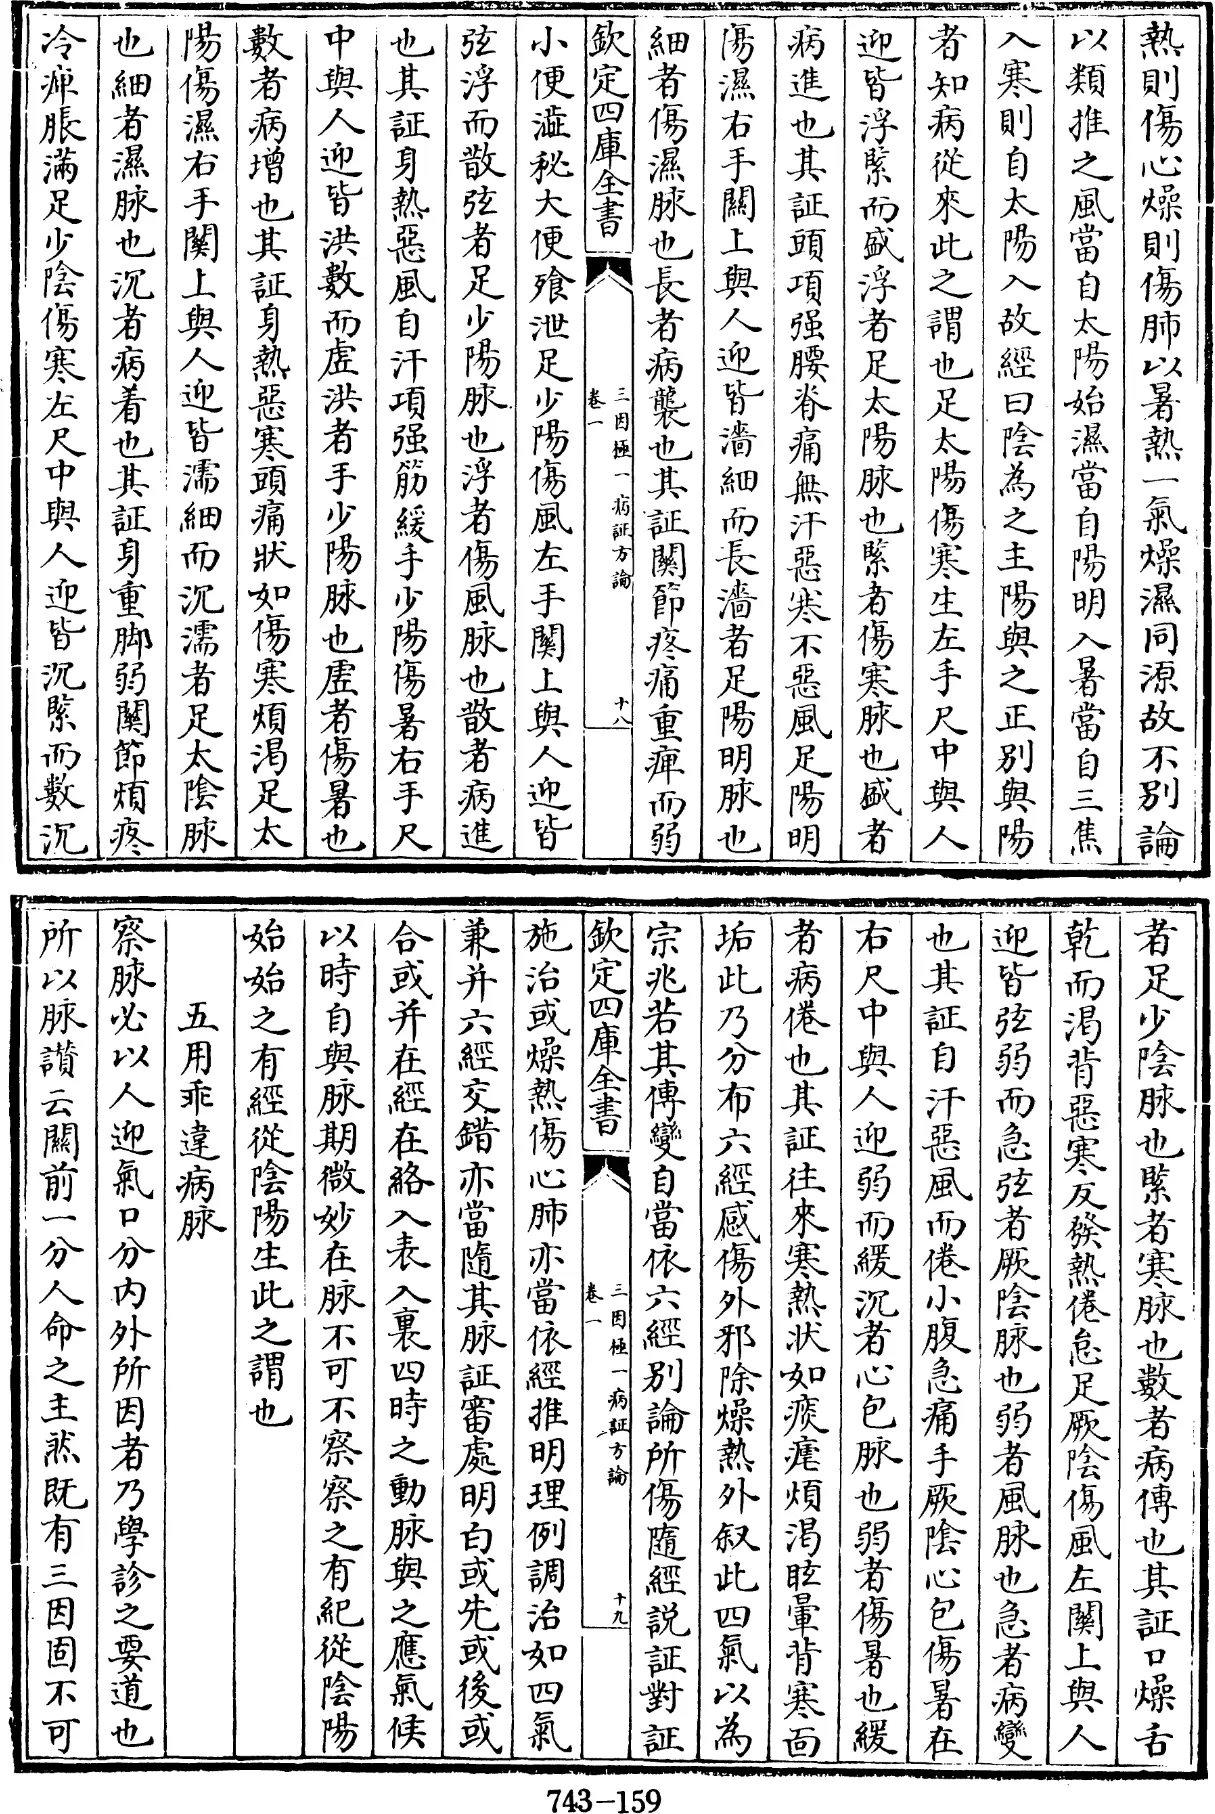 熱則傷心燥則傷肺以暑熱一氣燥濕同源故不别論
以類推之風當自太陽始濕當自陽明入暑當自三焦
入寒則自太陽入故經曰陰為之主陽與之正别與陽
者知病從來此之謂也足太陽傷寒生左手尺中與人
迎皆浮緊而盛浮者足太陽脉也緊者傷寒脉也盛者
病進也其証頭項强腰脊痛無汗惡寒不惡風足陽明
傷濕右手關上與人迎皆濇細而長濇者足陽明脉也
細者傷濕脉也長者病襲也其証關節疼痛重痺而弱
欽定四庫全書
三因極一病証方論
卷一
十八
小便澁秘大便飱泄足少陽傷風左手關上與人迎皆
弦浮而散弦者足少陽脉也浮者傷風脉也散者病進
也其証身熱惡風自汗項强筋緩手少陽傷暑右手尺
中與人迎皆洪數而虚洪者手少陽脉也虚者傷暑也
數者病增也其証身熱惡寒頭痛狀如傷寒煩渴足太
陽傷濕右手關上與人迎皆濡細而沉濡者足太陰脉
也細者濕脉也沉者病着也其証身重脚弱關節煩疼
冷痺脹滿足少陰傷寒左尺中與人迎皆沉緊而數沉
者足少陰脉也緊者寒脉也數者病傳也其証口燥舌
乾而渴背惡寒反發熱倦怠足厥陰傷風左關上與人
迎皆弦弱而急弦者厥陰脉也弱者風脉也急者病變
也其証自汗惡風而倦小腹急痛手厥陰心包傷暑在
右尺中與人迎弱而緩沉者心包脉也弱者傷暑也緩
者病倦也其証往來寒熱狀如痎瘧煩渴眩暈背寒面
垢此乃分布六經感傷外邪除燥熱外叙此四氣以為
宗兆若其傳變自當依六經别論所傷隨經説証對証
欽定四庫全書
三因極一病証方論
卷一
十九
施治或燥熱傷心肺亦當依經推明理例調治如四氣
兼并六經交錯亦當隨其脉証審處明白或先或後或
合或并在經在絡入表入裏四時之動脉與之應氣候
以時自與脉期微妙在脉不可不察察之有紀從陰陽
始始之有經從陰陽生此之謂也
五用乖違病脉
察脉必以人迎氣口分内外所因者乃學診之要道也
所以脉讃云關前一分人命之主然既有三因固不可
743-159